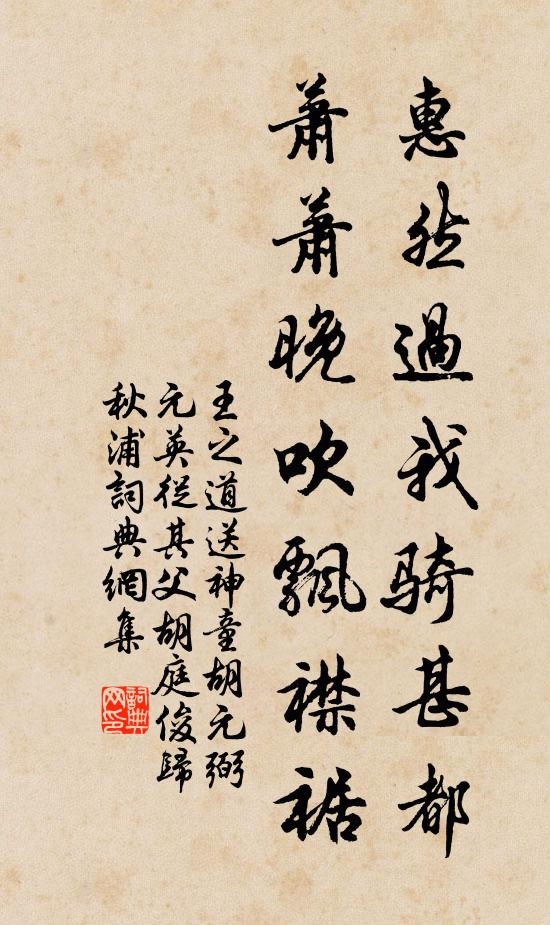 惠然過我騎甚都
蕭蕭晚吹飄襟裾
王之道送神童胡元弼
元英從其父胡庭俊歸
秋浦詞典網集
詞典
网印